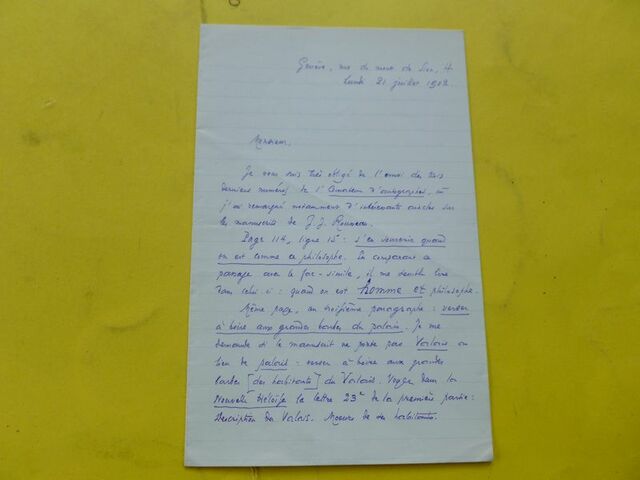 Genève, rue du mont de Sion, 4
Lundi 21 juillet 1902.
Monsieur,
Je vous suis très obligé de l'envoi des trois
derniers numéros de l'Amateur d'autographes, où
j'ai remarqué notamment d'intéressants articles sur
les manuscrits de J. J. Rousseau.
Page 114, ligne 15e : s'en souvenir quand
on est comme ce philosophe. En comparant ce
passage avec le fac-simile, il me semble lire
dans celui-ci : quand on est homme et philosophe.
Même page, au troisième paragraphe : verser
à boire aux grandes barbes du palais. Je me
demande si le manuscrit ne porte pas Valais au
lieu de palais : verser à boire aux grandes
barbes [des habitants] du Valais. Voyez dans la
Nouvelle Héloïse la lettre 23e de la première partie :
Description du Valais. Moeurs de ses habitants.